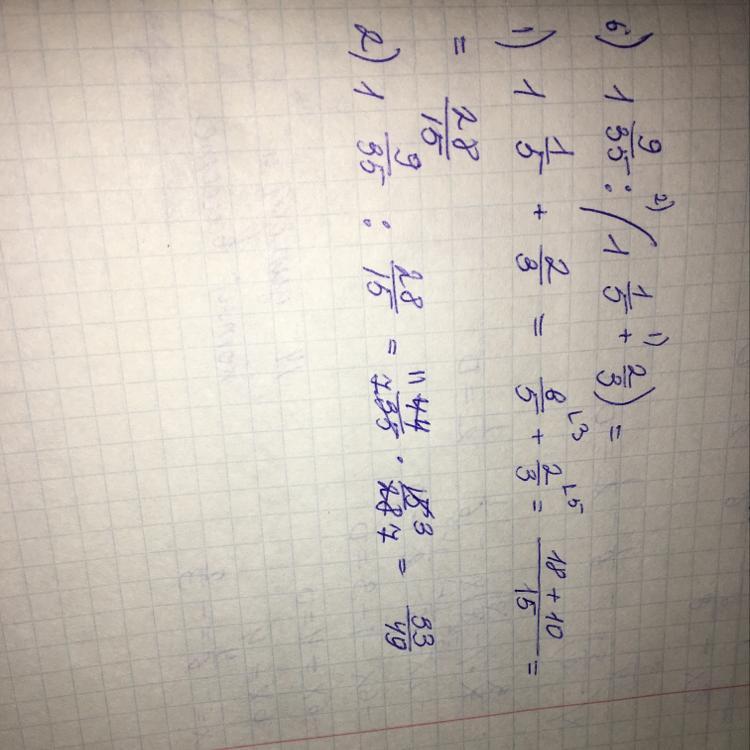 б) 1 9/35 : (1 1/5 + 2/3) =
2) 1)
1) 1 1/5 + 2/3 = 6/5 ⌊3 + 2/3 ⌊5 = 18 + 10/15 =
= 28/15
2) 1 9/35 : 28/15 = 11 44/7 35 · 15 3/28 7 = 33/49